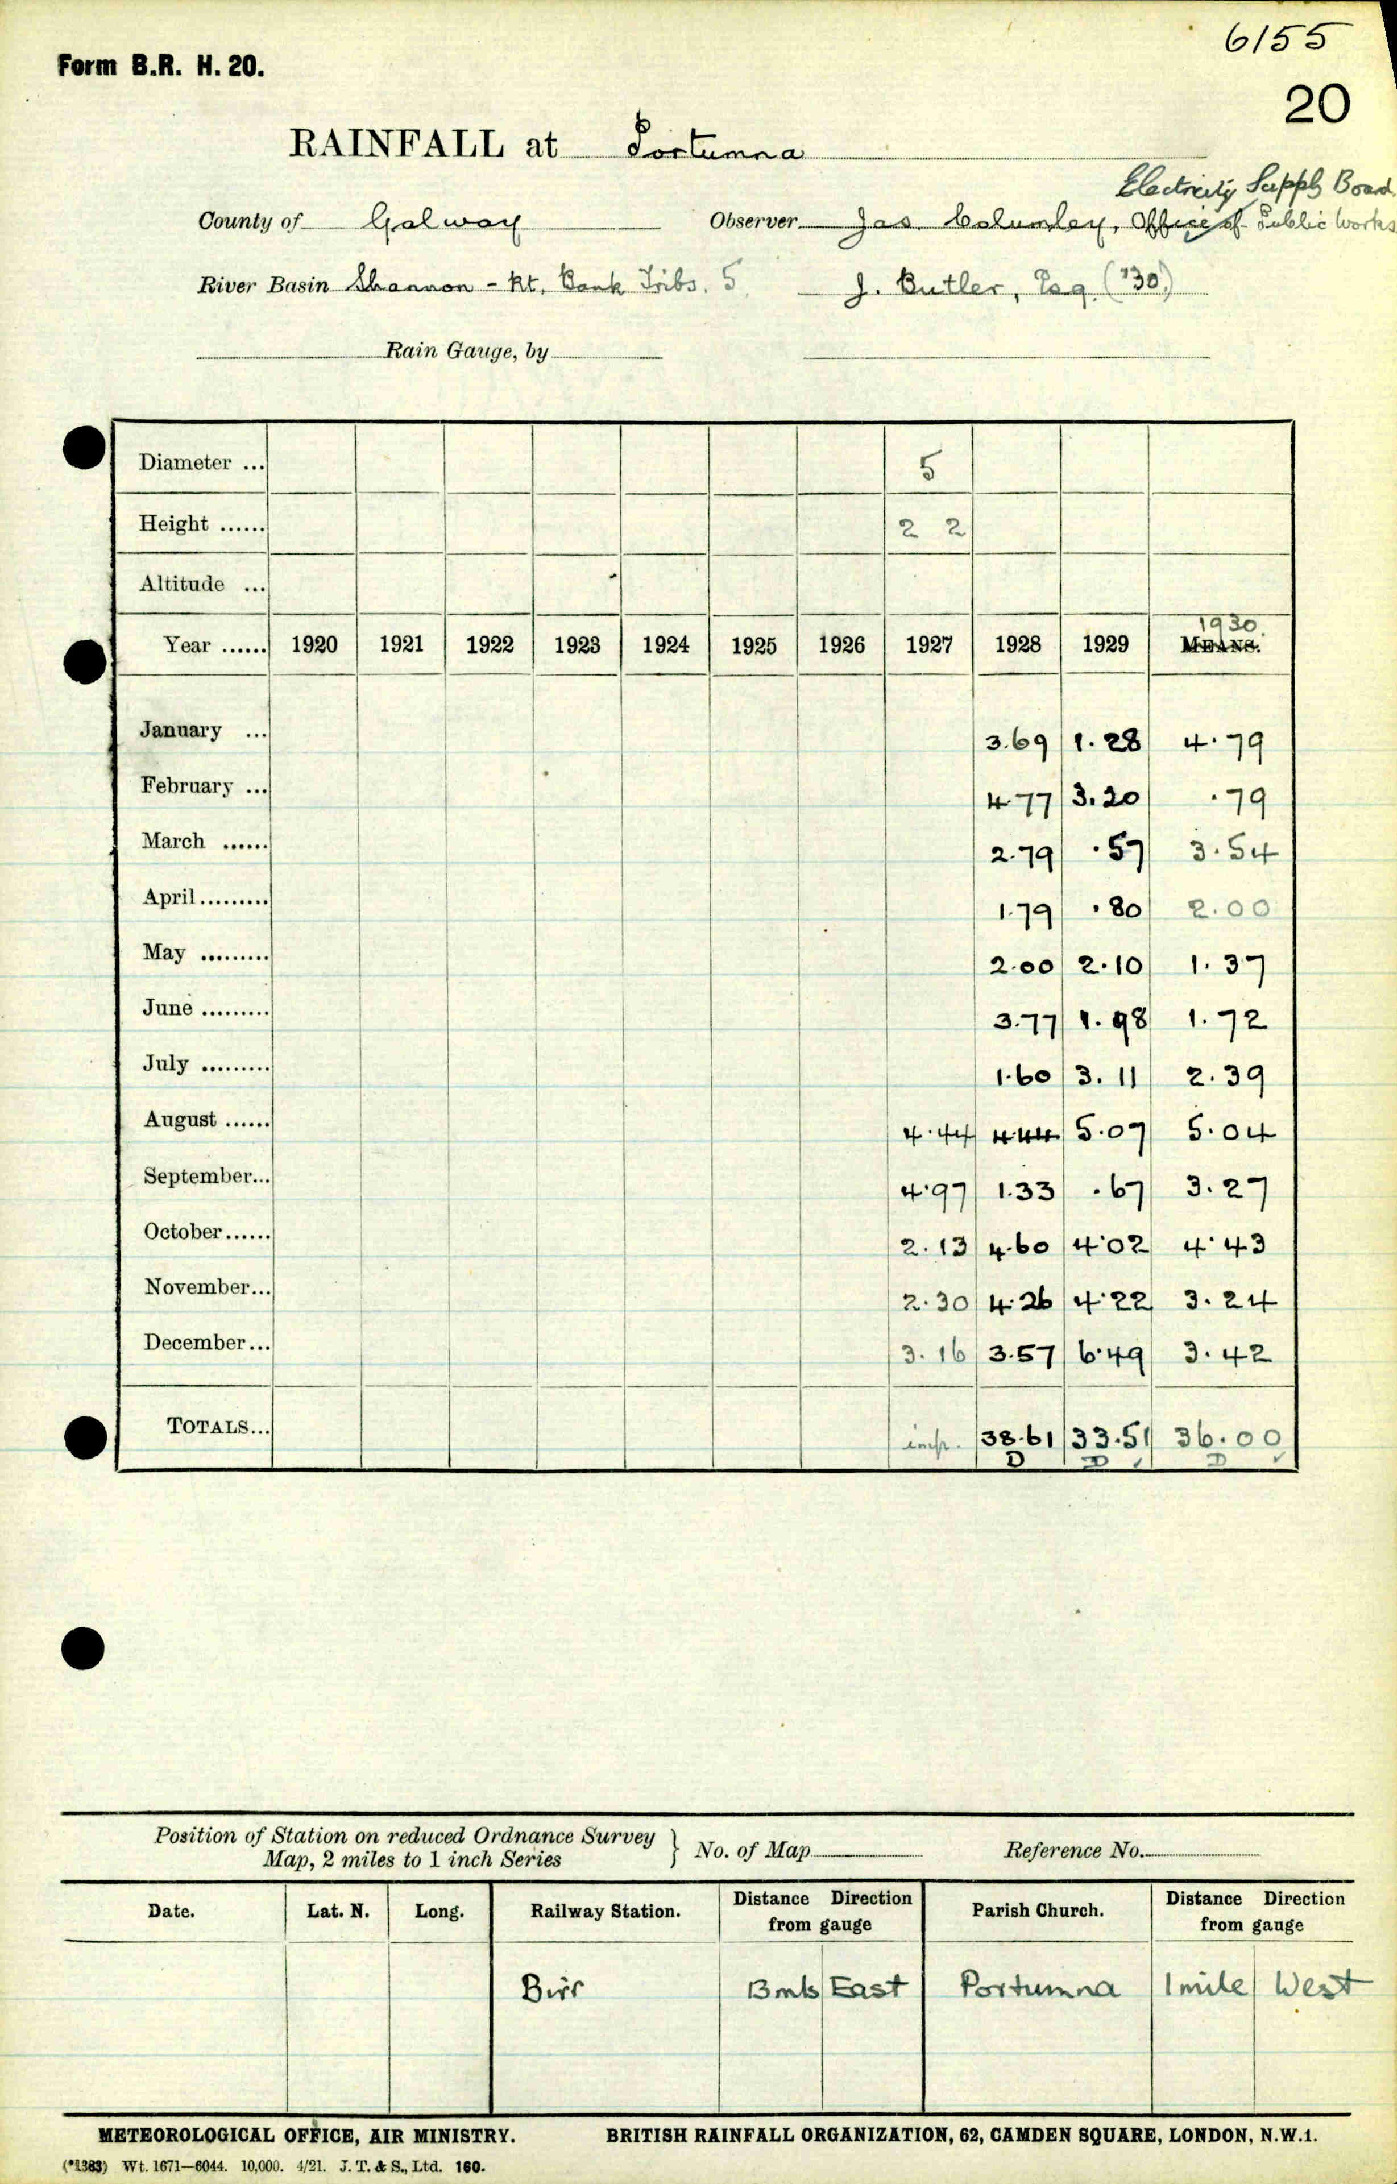 6155
Form B.R. H. 20.
20
RAINFALL at Portumna
Electricity Supply Board
County of Galway Observer Jas. Office of Public Works
River Basin Shannon - Rt. Bank Tribs. 5 J. Butler, Esq. ("30.)
Rain Gauge, by
Diameter ... 5
Height ...... 2 2
Altitude ...
1930.
Year ...... 1920 1921 1922 1923 1924 1925 1926 1927 1928 1929 MEANS.
January ... 3.69 1.28 4.79
February ... 4.77 3.20 .79
March ...... 2.79 .57 3.54
April......... 1.79 .80 2.00
May ......... 2.00 2.10 1.37
June ......... 3.77 1.98 1.72
July ......... 1.60 3.11 2.39
August ...... 4.44 4.44 5.07 5.04
September... 4.97 1.33 .67 3.27
October...... 2.13 4.60 4.02 4.43
November... 2.30 4.26 4.22 3.24
December... 3.16 3.57 6.49 3.42
TOTALS... imp. 38.61 33.51 36.00
D D ✓ D ✓
Position of Station on reduced Ordnance Survey
Map, 2 miles to 1 inch Series } No. of Map Reference No.
Date. Lat. N. Long. Railway Station. Distance Direction from gauge Parish Church. Distance Direction from gauge
Birr 13 mls East Portumna 1 mile West
METEOROLOGICAL OFFICE, AIR MINISTRY. BRITISH RAINFALL ORGANIZATION, 62, CAMDEN SQUARE, LONDON, N.W.1.
(*1383) Wt. 1671—6044. 10,000. 4/21. J. T. & S., Ltd. 160.